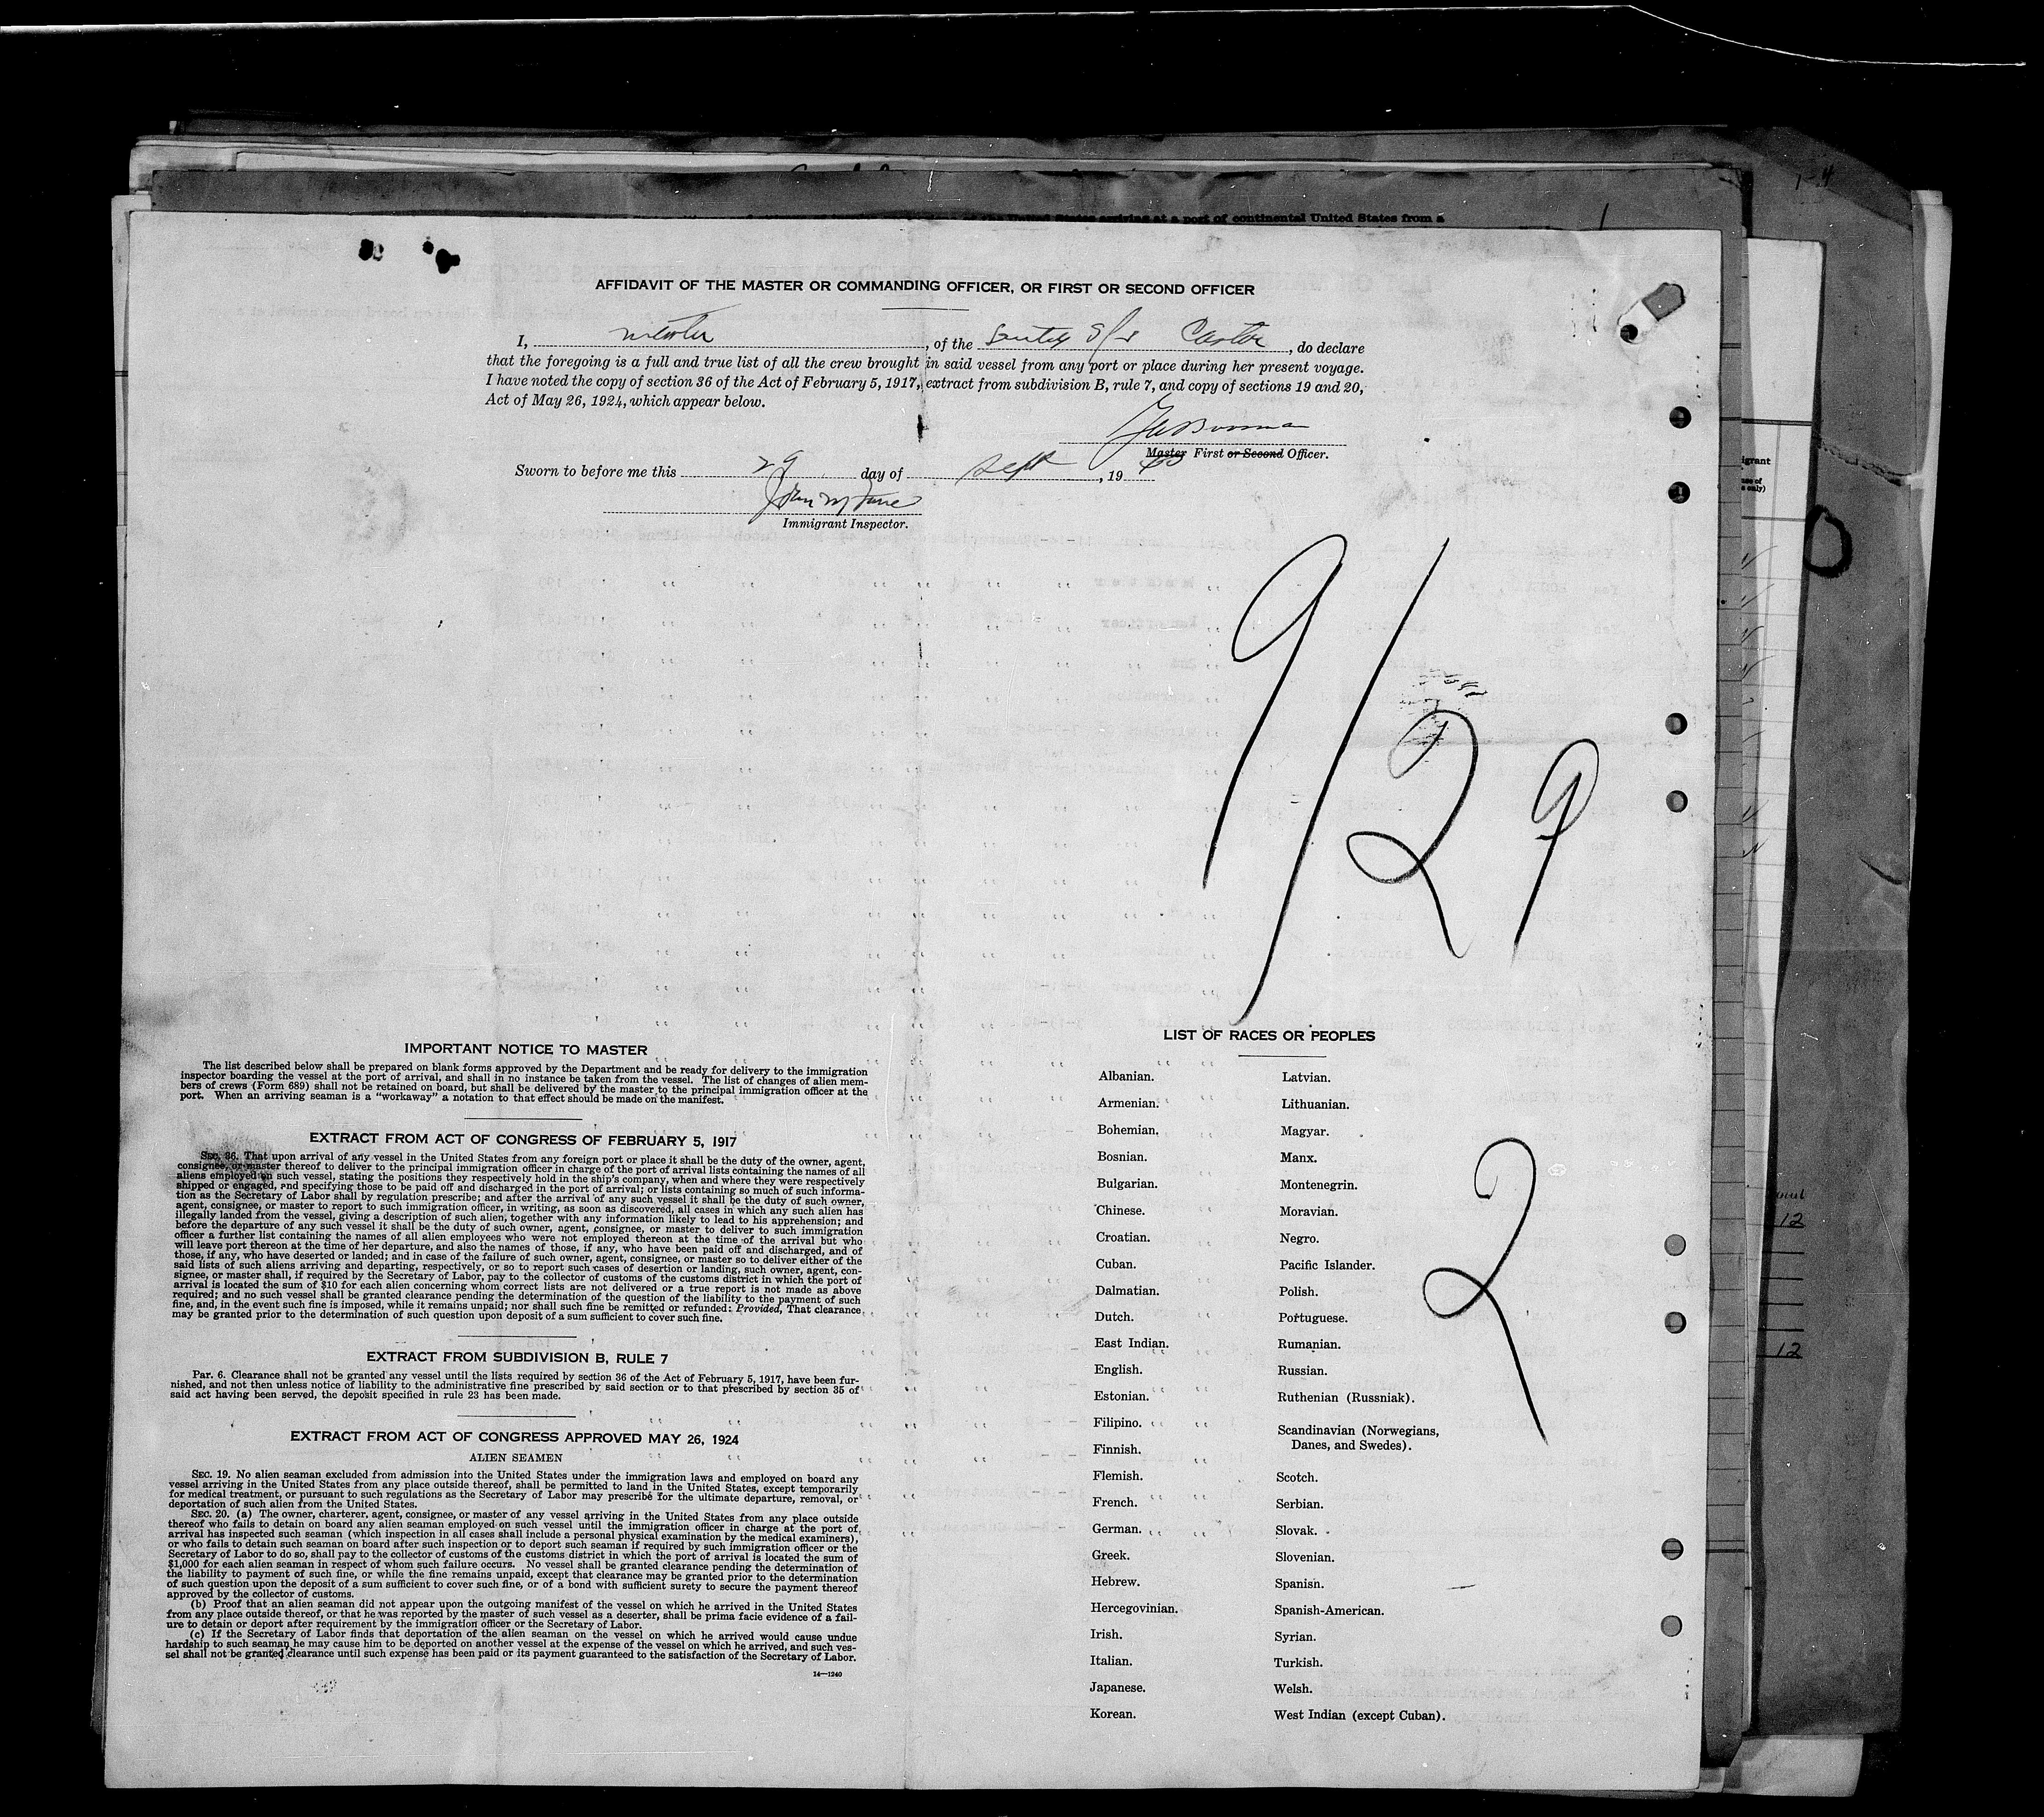 at a port of continental United States from a
AFFIDAVIT OF THE MASTER OR COMMANDING OFFICER, OR FIRST OR SECOND OFFICER
I, master, of the Dutch S/S Castor, do declare
that the foregoing is a full and true list of all the crew brought in said vessel from any port or place during her present voyage.
I have noted the copy of section 36 of the Act of February 5, 1917, extract from subdivision B, rule 7, and copy of sections 19 and 20,
Act of May 26, 1924, which appear below.
Master First or Second Officer.
Sworn to before me this 29 day of Sept, 1940
Immigrant Inspector.
9/29
IMPORTANT NOTICE TO MASTER
The list described below shall be prepared on blank forms approved by the Department and be ready for delivery to the immigration
inspector boarding the vessel at the port of arrival, and shall in no instance be taken from the vessel. The list of changes of alien mem-
bers of crews (Form 689) shall not be retained on board, but shall be delivered by the master to the principal immigration officer at the
port. When an arriving seaman is a "workaway" a notation to that effect should be made on the manifest.
EXTRACT FROM ACT OF CONGRESS OF FEBRUARY 5, 1917
SEC. 36. That upon arrival of any vessel in the United States from any foreign port or place it shall be the duty of the owner, agent,
consignee, or master thereof to deliver to the principal immigration officer in charge of the port of arrival lists containing the names of all
aliens employed on such vessel, stating the positions they respectively hold in the ship's company, when and where they were respectively
shipped or engaged, and specifying those to be paid off and discharged in the port of arrival; or lists containing so much of such informa-
tion as the Secretary of Labor shall by regulation prescribe; and after the arrival of any such vessel it shall be the duty of such owner,
agent, consignee, or master to report to such immigration officer, in writing, as soon as discovered, all cases in which any such alien has
illegally landed from the vessel, giving a description of such alien, together with any information likely to lead to his apprehension; and
before the departure of any such vessel it shall be the duty of such owner, agent, consignee, or master to deliver to such immigration
officer a further list containing the names of all alien employees who were not employed thereon at the time of the arrival but who
will leave port thereon at the time of her departure, and also the names of those, if any, who have been paid off and discharged, and of
those, if any, who have deserted or landed; and in case of the failure of such owner, agent, consignee, or master so to deliver either of the
said lists of such aliens arriving and departing, respectively, or so to report such cases of desertion or landing, such owner, agent, con-
signee, or master shall, if required by the Secretary of Labor, pay to the collector of customs of the customs district in which the port of
arrival is located the sum of $10 for each alien concerning whom correct lists are not delivered or a true report is not made as above
required; and no such vessel shall be granted clearance pending the determination of the question of the liability to the payment of such
fine, and, in the event such fine is imposed, while it remains unpaid; nor shall such fine be remitted or refunded: Provided, That clearance
may be granted prior to the determination of such question upon deposit of a sum sufficient to cover such fine.
EXTRACT FROM SUBDIVISION B, RULE 7
Par. 6. Clearance shall not be granted any vessel until the lists required by section 36 of the Act of February 5, 1917, have been fur-
nished, and not then unless notice of liability to the administrative fine prescribed by said section or to that prescribed by section 35 of
said act having been served, the deposit specified in rule 23 has been made.
EXTRACT FROM ACT OF CONGRESS APPROVED MAY 26, 1924
ALIEN SEAMEN
SEC. 19. No alien seaman excluded from admission into the United States under the immigration laws and employed on board any
vessel arriving in the United States from any place outside thereof, shall be permitted to land in the United States, except temporarily
for medical treatment, or pursuant to such regulations as the Secretary of Labor may prescribe for the ultimate departure, removal, or
deportation of such alien from the United States.
SEC. 20. (a) The owner, charterer, agent, consignee, or master of any vessel arriving in the United States from any place outside
thereof who fails to detain on board any alien seaman employed on such vessel until the immigration officer in charge at the port of
arrival has inspected such seaman (which inspection in all cases shall include a personal physical examination by the medical examiners),
or who fails to detain such seaman on board after such inspection or to deport such seaman if required by such immigration officer or the
Secretary of Labor to do so, shall pay to the collector of customs of the customs district in which the port of arrival is located the sum of
$1,000 for each alien seaman in respect of whom such failure occurs. No vessel shall be granted clearance pending the determination of
the liability to payment of such fine, or while the fine remains unpaid, except that clearance may be granted prior to the determination
of such question upon the deposit of a sum sufficient to cover such fine, or of a bond with sufficient surety to secure the payment thereof
approved by the collector of customs.
(b) Proof that an alien seaman did not appear upon the outgoing manifest of the vessel on which he arrived in the United States
from any place outside thereof, or that he was reported by the master of such vessel as a deserter, shall be prima facie evidence of a fail-
ure to detain or deport after requirement by the immigration officer or the Secretary of Labor.
(c) If the Secretary of Labor finds that deportation of the alien seaman on the vessel on which he arrived would cause undue
hardship to such seaman he may cause him to be deported on another vessel at the expense of the vessel on which he arrived, and such ves-
sel shall not be granted clearance until such expense has been paid or its payment guaranteed to the satisfaction of the Secretary of Labor.
14—1240
LIST OF RACES OR PEOPLES
Albanian.
Armenian.
Bohemian.
Bosnian.
Bulgarian.
Chinese.
Croatian.
Cuban.
Dalmatian.
Dutch.
East Indian.
English.
Estonian.
Filipino.
Finnish.
Flemish.
French.
German.
Greek.
Hebrew.
Hercegovinian.
Irish.
Italian.
Japanese.
Korean.
Latvian.
Lithuanian.
Magyar.
Manx.
Montenegrin.
Moravian.
Negro.
Pacific Islander.
Polish.
Portuguese.
Rumanian.
Russian.
Ruthenian (Russniak).
Scandinavian (Norwegians,
Danes, and Swedes).
Scotch.
Serbian.
Slovak.
Slovenian.
Spanish.
Spanish-American.
Syrian.
Turkish.
Welsh.
West Indian (except Cuban).
2
12
12